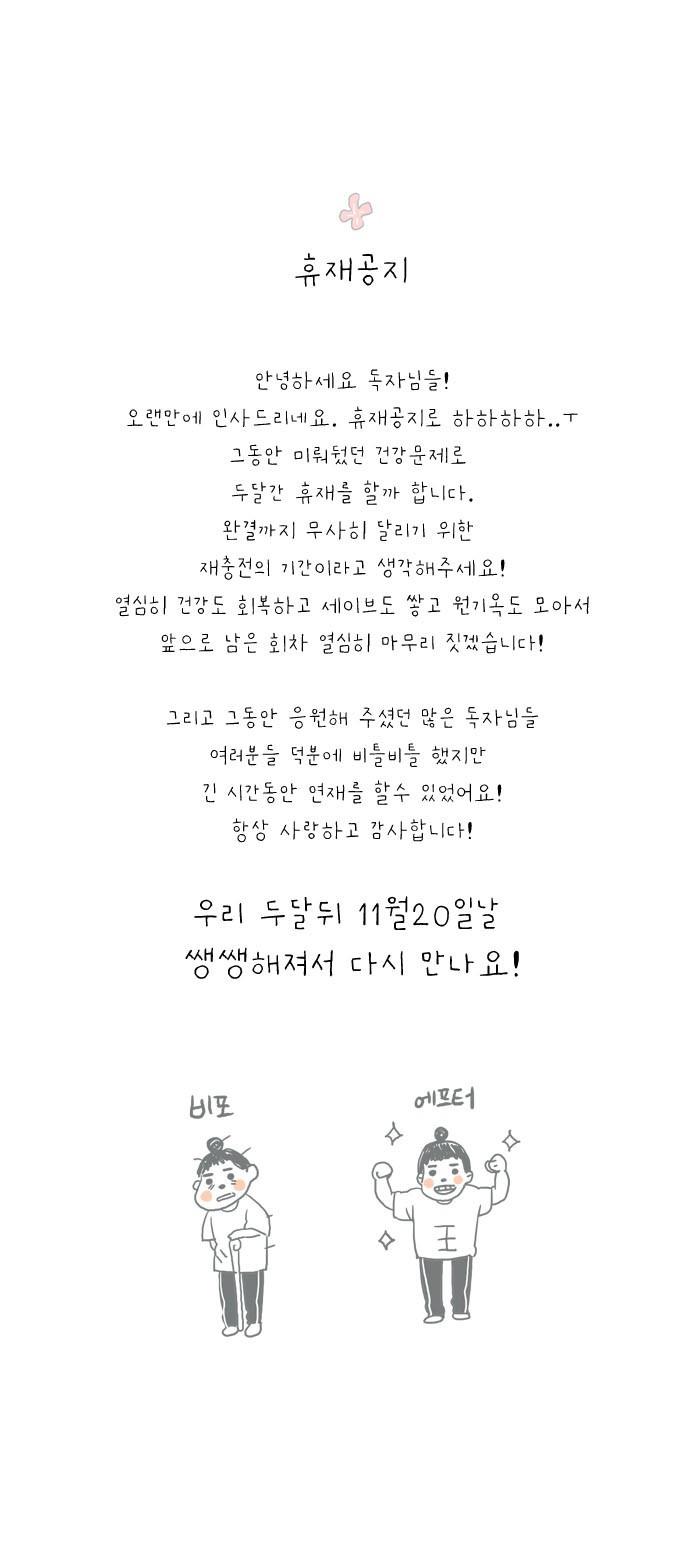 휴재공지
안녕하세요 독자님들!
오랜만에 인사드리네요. 휴재공지로 하하하하..ㅜ
그동안 미뤄뒀던 건강문제로
두달간 휴재를 할까 합니다.
완결까지 무사히 달리기 위한
재충전의 기간이라고 생각해주세요!
열심히 건강도 회복하고 세이브도 쌓고 원기옥도 모아서
앞으로 남은 회차 열심히 마무리 짓겠습니다!
그리고 그동안 응원해 주셨던 많은 독자님들
여러분들 덕분에 비틀비틀 했지만
긴 시간동안 연재를 할수 있었어요!
항상 사랑하고 감사합니다!
우리 두달뒤 11월20일날
쌩쌩해져서 다시 만나요!
비포
에프터
王